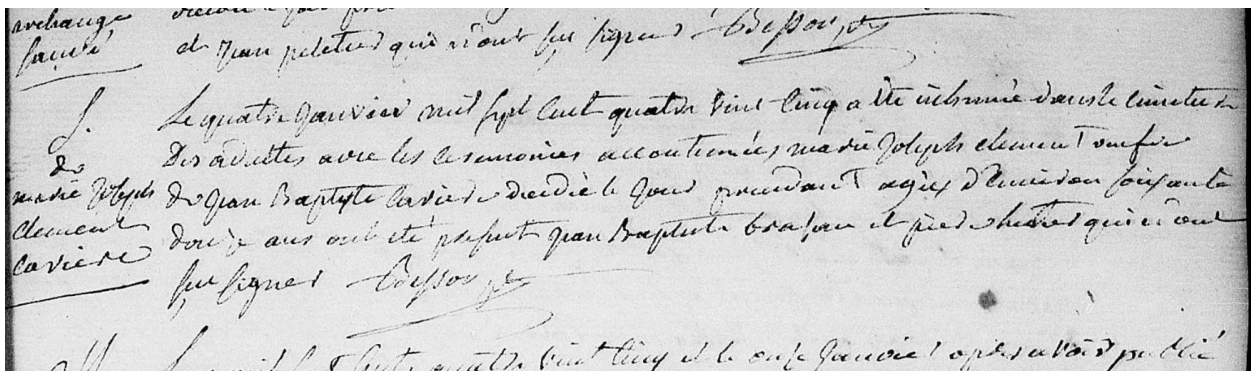 et Jean peletier qui n'ont sçu signer Besson ptre
S.
de
marie Joseph
clement
lariviere
Le quatre Janvier mil sept cent quatre vint cinq a été inhumée dans le cimetiere
Des adultes avec les ceremonies accoutumées marie Joseph clement veufve
de Jean Baptiste lariviere decedée le Jour precedant agée d'environ soixante
douze ans ont été present Jean Baptiste et pierre qui n'ont
sçu signer Besson ptre
mil sept cent quatre vint cinq et le onze Janvier après avoir publié